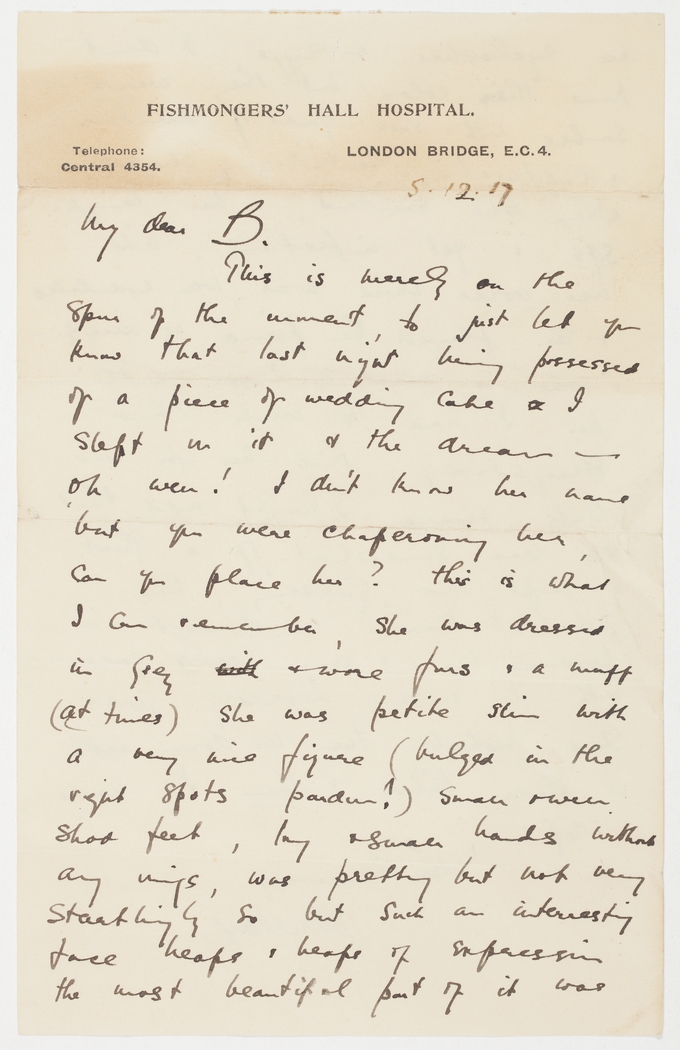 FISHMONGERS' HALL HOSPITAL.
Telephone:
Central 4354.
LONDON BRIDGE, E.C.4.
5.12.17
My dear B.
This is merely on the
spur of the moment, to just let you
know that last night being possessed
of a piece of wedding cake & I
slept on it & the dream —
oh well! I don't know her name
but you were chaperoning her,
can you place her? This is what
I can remember, she was dressed
in grey with & wore furs & a muff
(at times) she was petite slim with
a very nice figure (bulged in the
right spots pardon!) small & well
shod feet, long & small hands without
any rings, was pretty but not very
startlingly so but such an interesting
face heaps & heaps of expression
the most beautiful part of it was